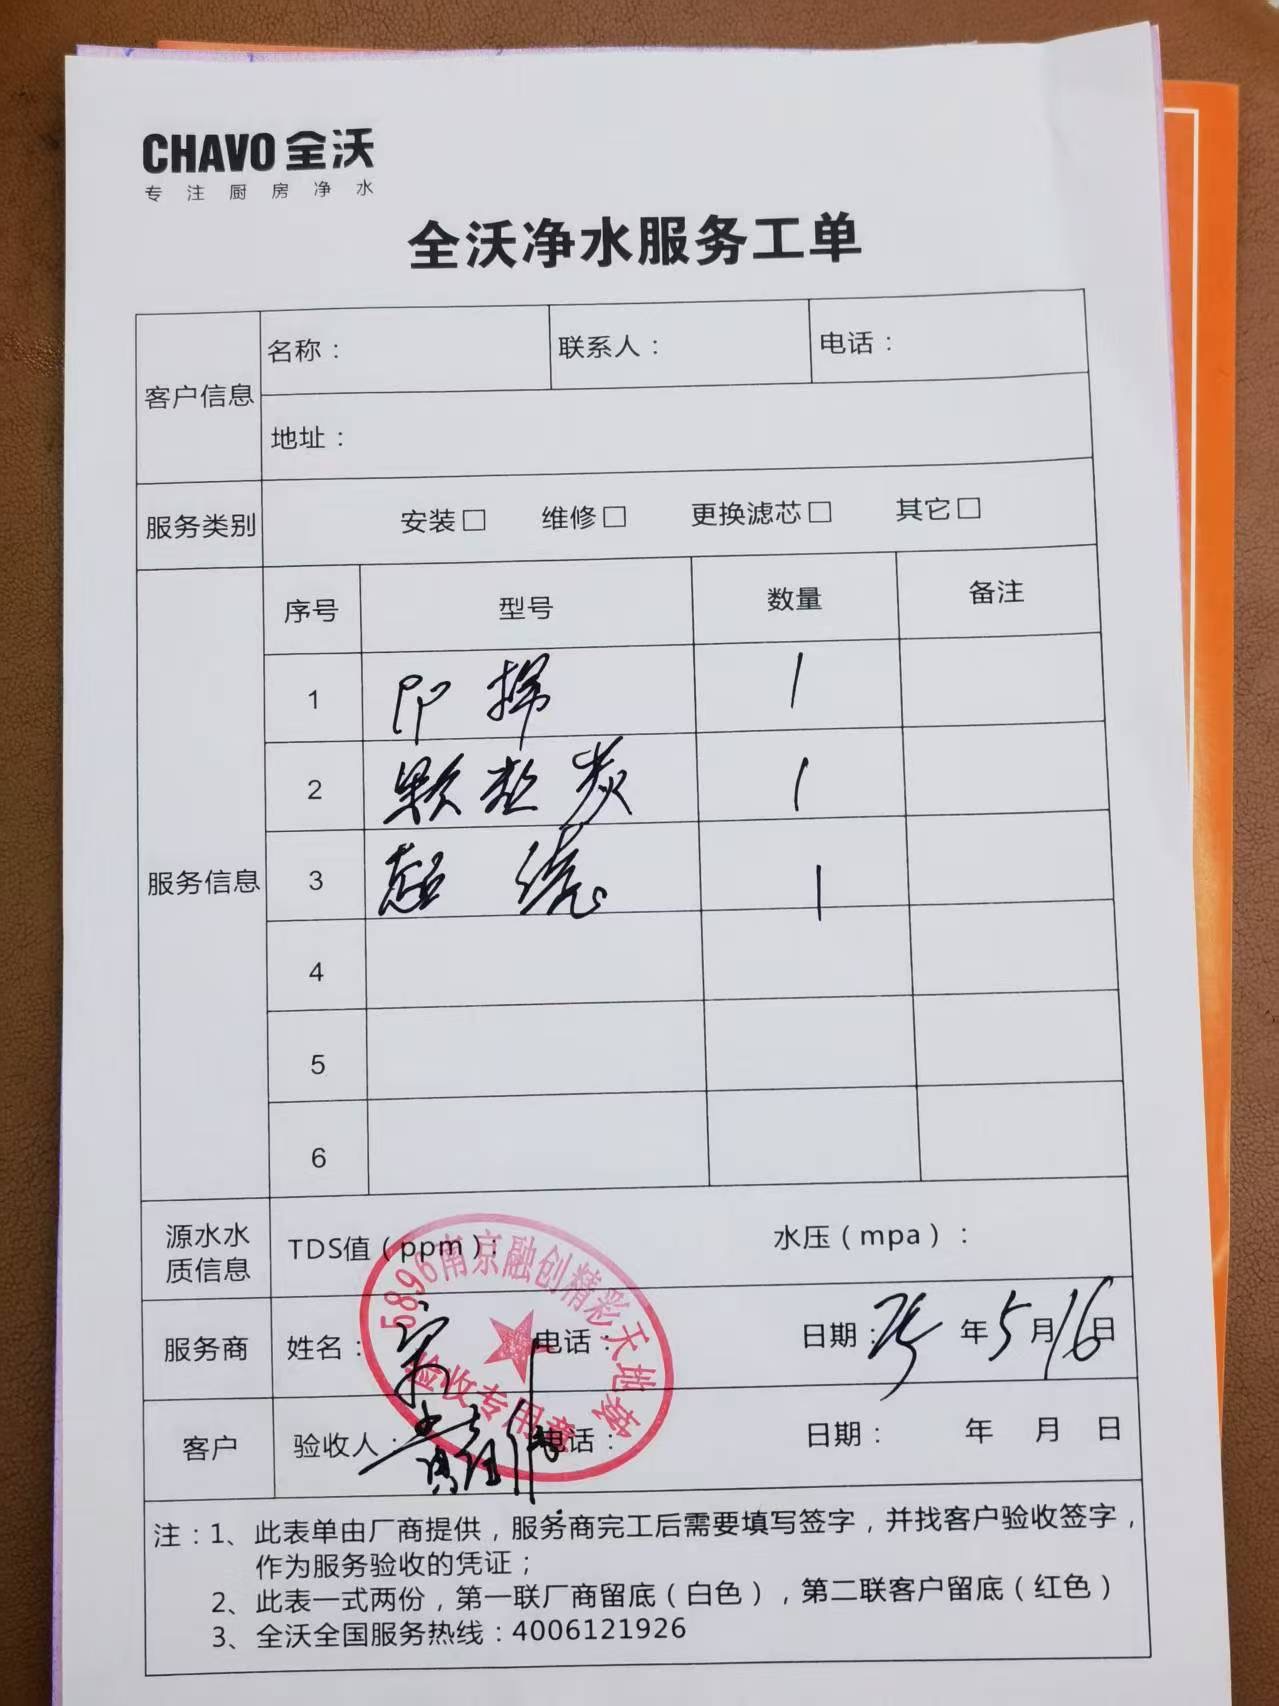 CHAVO 全沃
专注厨房净水
全沃净水服务工单
客户信息
名称： 联系人： 电话：
地址：
服务类别 安装□ 维修□ 更换滤芯□ 其它□
服务信息
序号 型号 数量 备注
1 PP棉 1
2 颗粒炭 1
3 超滤 1
4
5
6
源水水质信息 TDS值（ppm）： 水压（mpa）：
服务商 姓名： 电话： 日期：25年5月16日
客户 验收人： 电话： 日期： 年 月 日
5896南京融创精彩天地
验收专用章
注：1、此表单由厂商提供，服务商完工后需要填写签字，并找客户验收签字，
作为服务验收的凭证；
2、此表一式两份，第一联厂商留底（白色），第二联客户留底（红色）
3、全沃全国服务热线：4006121926